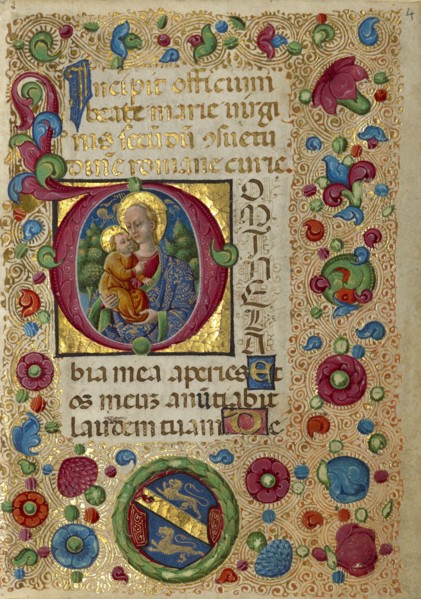 4
Incipit officium
beatę marie virgi
nis secūdū ꝯsuetu
dinē romane curie.
DOMINE LA
bia mea aperies Et
os meuz anūtiabit
laudem tuam De